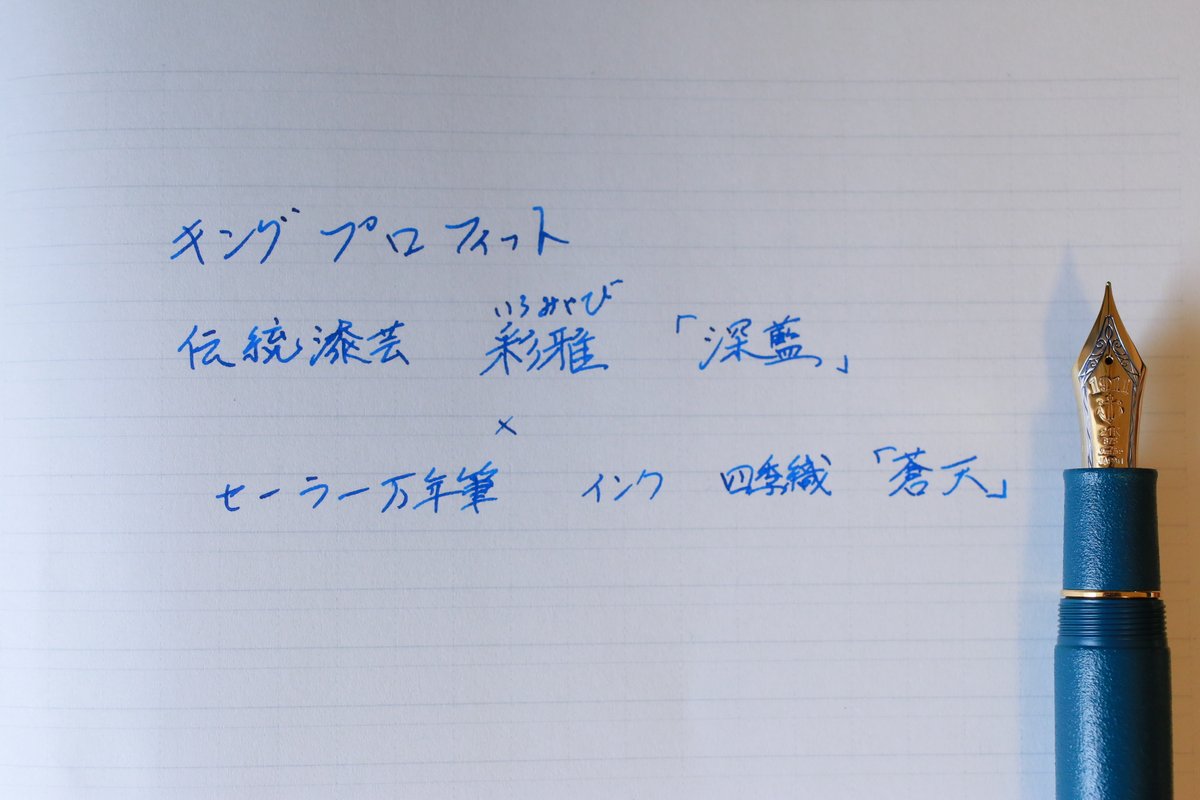 キングプロフィット
いろみやび
伝統漆芸 彩雅 「深藍」
×
セーラー万年筆 インク 四季織 「蒼天」
1911
21K
875
Sailor
JAPAN